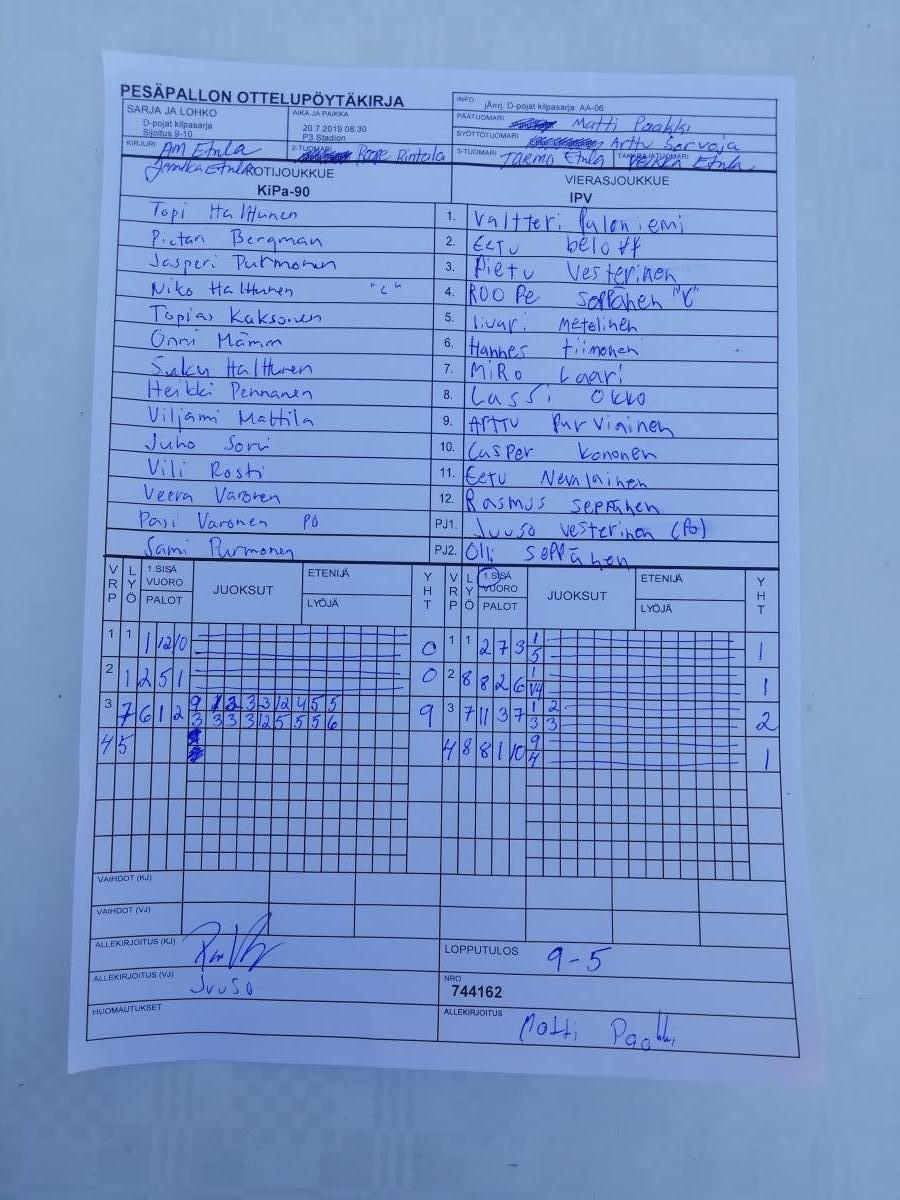 PESÄPALLON OTTELUPÖYTÄKIRJA
INFO jÄ¤rj. D-pojat kilpasarja: AA-06
SARJA JA LOHKO
D-pojat kilpasarja
Sijoitus 9-10
AIKA JA PAIKKA
20.7.2019 08:30
P3 Stadion
PÄÄTUOMARI Matti Paakki
SYÖTTÖTUOMARI Arttu Sarvoja
KIRJURI AM Etula
2-TUOMARI Roope Rinteila
3-TUOMARI Tarmo Etula TAKARAJATUOMARI Veikka Etula
KOTIJOUKKUE
KiPa-90
VIERASJOUKKUE
IPV
Topi Halttunen 1. Valtteri Paloniemi
Pietari Bergman 2. Eetu beloff
Jasperi Purmonen 3. Pietu Vesterinen
Niko Halttunen "C" 4. Roope Seppänen "C"
Topias Kaksonen 5. Iivari Metelinen
Onni Mämmi 6. Hannes Tiimonen
Saku Halttunen 7. Miro Laari
Heikki Pennanen 8. Lassi Okko
Viljami Mattila 9. Arttu Purviainen
Juho Sorvi 10. Casper Kononen
Vili Rosti 11. Eetu Nevalainen
Veera Varonen 12. Rasmus Seppänen
Pasi Varonen PÖ PJ1. Juuso Vesterinen (PÖ)
Sami Purmonen PJ2. Olli Seppänen
VRP LYÖ 1.SISÄ VUORO PALOT JUOKSUT ETENIJÄ LYÖJÄ YHT VRP LYÖ 1.SISÄ VUORO PALOT JUOKSUT ETENIJÄ LYÖJÄ YHT
1 1 1 12 10 0 1 1 2 7 3 1 1
5
2 1 2 5 1 0 2 8 8 2 6 1 1
3 7 6 1 2 9 1 2 3 3 12 4 5 5 9 3 7 11 3 7 1 2 2
3 3 3 3 12 5 5 5 6 3 3
4 5 4 8 8 1 10 9 1
4
VAIHDOT (KJ)
VAIHDOT (VJ)
ALLEKIRJOITUS (KJ)
LOPPUTULOS 9-5
ALLEKIRJOITUS (VJ) Juuso
NRO
744162
HUOMAUTUKSET
ALLEKIRJOITUS Matti Paakki